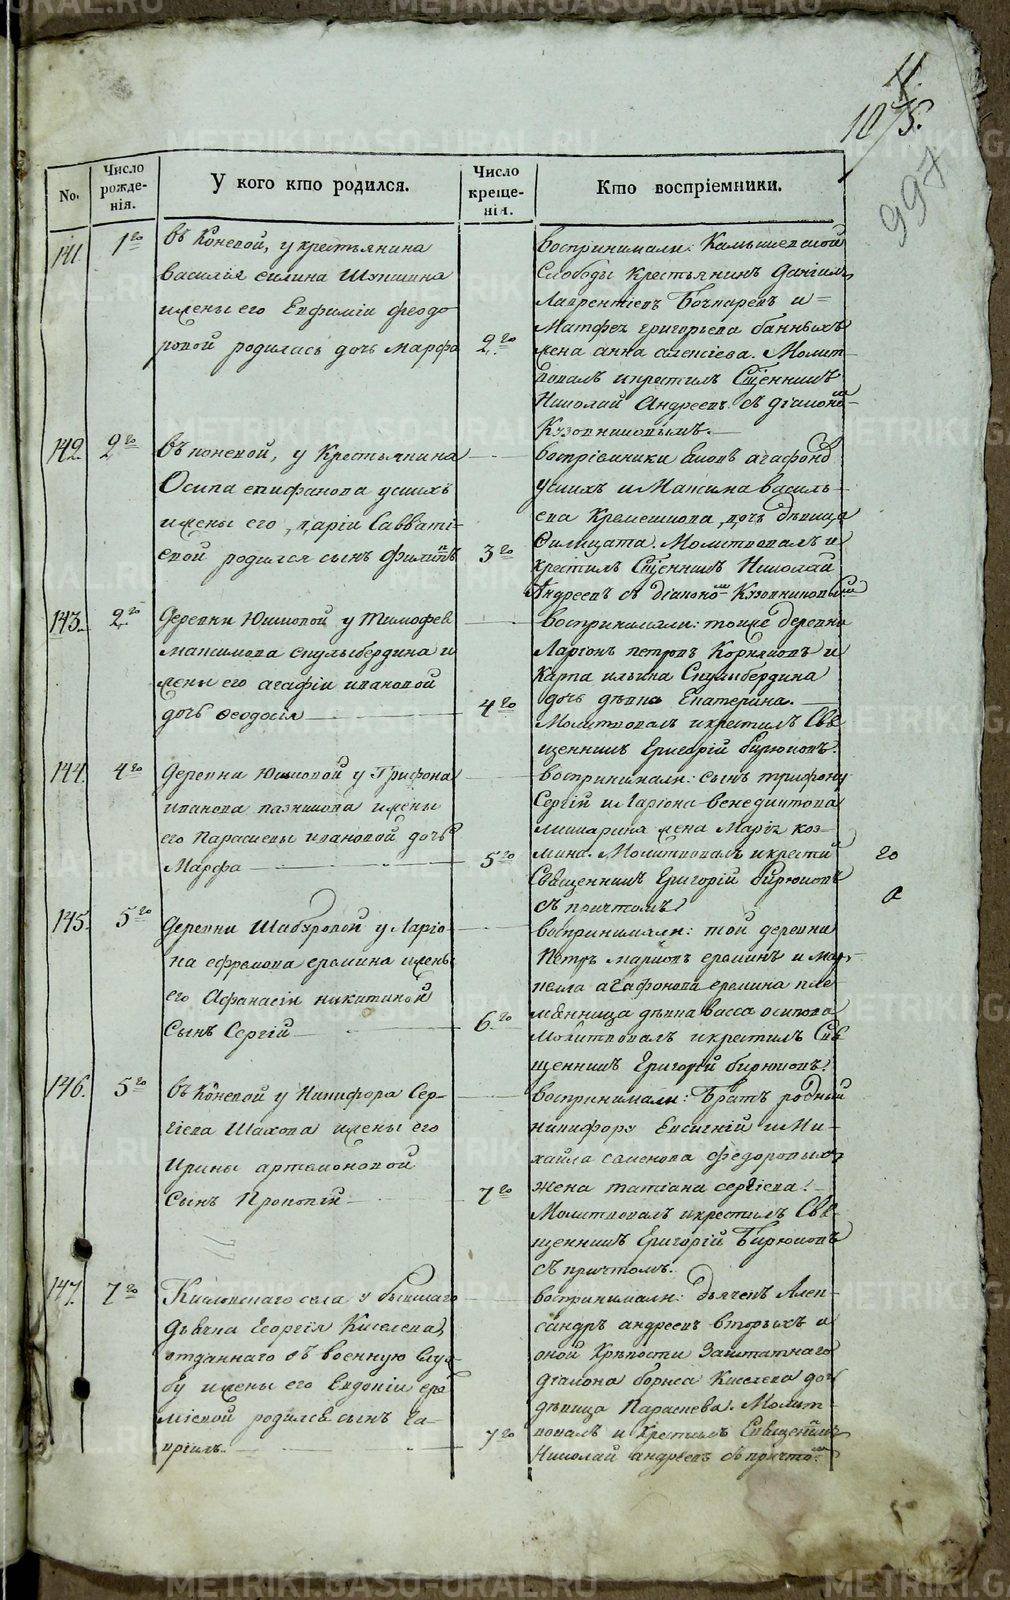 11.
1075.
997
No.
Число рожде-нія.
У кого кто родился.
Число креще-нія.
Кто воспріемники.
141.
1го
въ Коневой, у крестьянина
василья силина Шупшина
ижены его Евфиміи феодо
ровой родилась дочь Марфа
2го
воспринимали: Камышевской
Слободы Крестьянинъ Даніилъ
Лаврентіевъ Бочкаревъ и =
Матфея григорьева банныхъ
жена анна алексіева. Молит-
вовалъ икрестилъ Сщенникъ
Николай Андреевъ съ діакономъ
Кузовниковымъ.
142.
2го
въ коневой, у Крестьянина
Осипа епифанова усихъ
ижены его, дарiи Савватi-
евой родился сынъ Филипъ
3го
воспріемники Яковъ агафоновъ
усихъ и Максима василь-
ева Кремешкова, дочь дѣвица
Филицата. Молитвовалъ и
крестилъ Сщенникъ Николай
Андреевъ съ діакономъ Кузовниковымъ
143.
2го
Деревни Юшковой у Тимофея
максимова скулыбердина и
жены его агафіи ивановой
дочь Феодосія
4го
воспринимали: тоиже деревни
Ларіонъ петровъ Корняковъ и
Карпа ильина Скулыбердина
дочь дѣвка Екатерина.
Молитвовалъ икрестилъ Свя
щенникъ Григорій бирюковъ.
144.
4го
Деревни Юшковой у Трифона
иванова казникова ижены
его Парасковьи ивановой дочь
Марфа
5го
воспринимали: сынъ трифону
Сергій и Ларіона венедиктова
жена Марія коз-
мина. Молитвовалъ икрести
Священникъ Григорій бирюковъ
съ причтомъ.
го
а
145.
5го
Деревни Шабуровой у Ларіо-
на ефремова еремина ижены
его Афанасіи никитиной
Сынъ Сергій
6го
воспринимали: той деревни
Петръ марковъ ереминъ и Мар-
кела агафонова еремина пле
мянница дѣвка васса осипова
Молитвовалъ икрестилъ Свя
щенникъ Григорій бирюковъ.
146.
5го
въ Коневой у Никифора Сер-
гіева Шахова ижены его
Ирины артемоновой
Сынъ Прокопій
7го
воспринимали: Братъ родный
никифору Евсигній и Ми-
хайла семенова федоровыхъ
жена татіана сергіева.
Молитвовалъ икрестилъ Свя-
щенникъ Григорій Бирюковъ
съ причтомъ.
147.
7го
Кисловскаго села у бывшаго
дьячка Георгія Киселева,
отданнаго въ военную Служ
бу ижены его Евдокіи ере
міевой родился сынъ Га-
вріилъ.
7го
воспринимали: дьячекъ Алек-
сандръ андреевъ вторыхъ и
оной Крѣпости Заштатнаго
діакона бориса Киселева дочь
дѣвица Параскева. Молит-
вовалъ и Крестилъ Священникъ
Николай андреевъ съ причтомъ